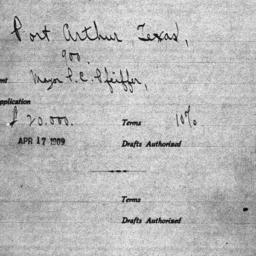 Port Arthur, Texas,
900.
nt Mayor P. C. Pfeiffer,
pplication
$ 20.000. Terms 10%
APR 17 1909 Drafts Authorized
Terms
Drafts Authorized